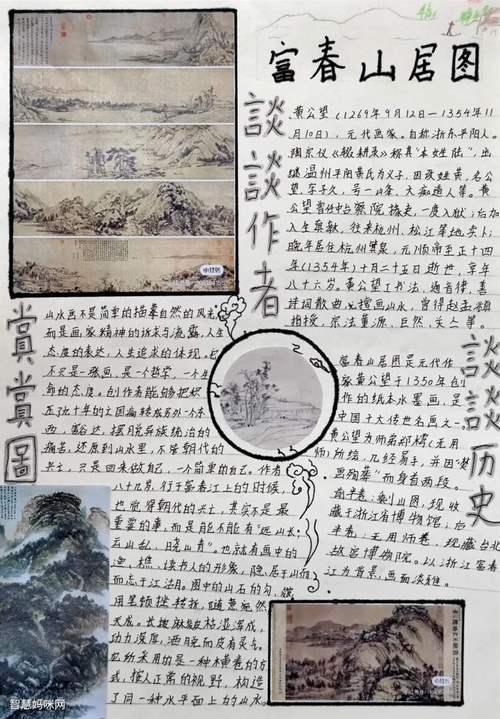 富春山居图
談談作者
黄公望(1269年9月12日—1354年11
月10日),元代画家。自称浙东平阳人。
陶宗仪《辍耕录》称其"本姓陆",出
继温州平阳黄氏为义子,因改姓黄,名公
望,字子久,号一峰、大痴道人等。黄
公望曾任中台察院掾吏,一度入狱;后加
入全真教,往来杭州、松江等地卖卜;
晚年居住杭州筲泉,元顺帝至正十四
年(1354年)十月二十五日逝世,享年
八十六岁。黄公望工书法,通音律,善
诗词散曲,擅画山水,曾得赵孟頫
指授,宗法董源、巨然、关仝等。
賞賞圖
山水画不是简单的描摹自然的风光
而是画家精神的诉求与流露,人生
态度的表达,人生追求的体现。它
不只是一张画,是一个哲学,一个生
命的态度。创作者能够把积
压数十年的亡国痛转成另外一个东
西,豁达,摆脱异族统治的
痛苦,还原到山水里,不管朝代的
兴亡,只是回来做自己,一个简单的自己。作者
八十九岁,行于富春江上的时候,
也觉得朝代的兴亡,其实不是最
重要的事,而是能不能有"远山长,
云山乱,晓山青"。他就看画中的
渔,樵,读书人的形象,隐居于山而
而志于江湖。图中的山石的勾,皴
用笔顿挫转折,随意宛然
天成。长披麻皴枯湿浑成,
功力深厚,洒脱而皮有灵气。
它所采用的是一种横卷的方
式,按人正常的视野,构造
了同一种水平面上的山水。
談談历史
富春山居图是元代作
家黄公望于1350年创
作的纸本水墨画,是
中国十大传世名画之一。
黄公望为师弟郑樗(无用
师)所绘,几经易手,并因"焚
画殉葬"而身首两段。
前半卷:剩山图,现收
藏于浙江省博物馆,后
半卷:无用师卷,现藏台北
故宫博物院。以浙江富春
江为背景,画面淡雅。
智慧妈咪网